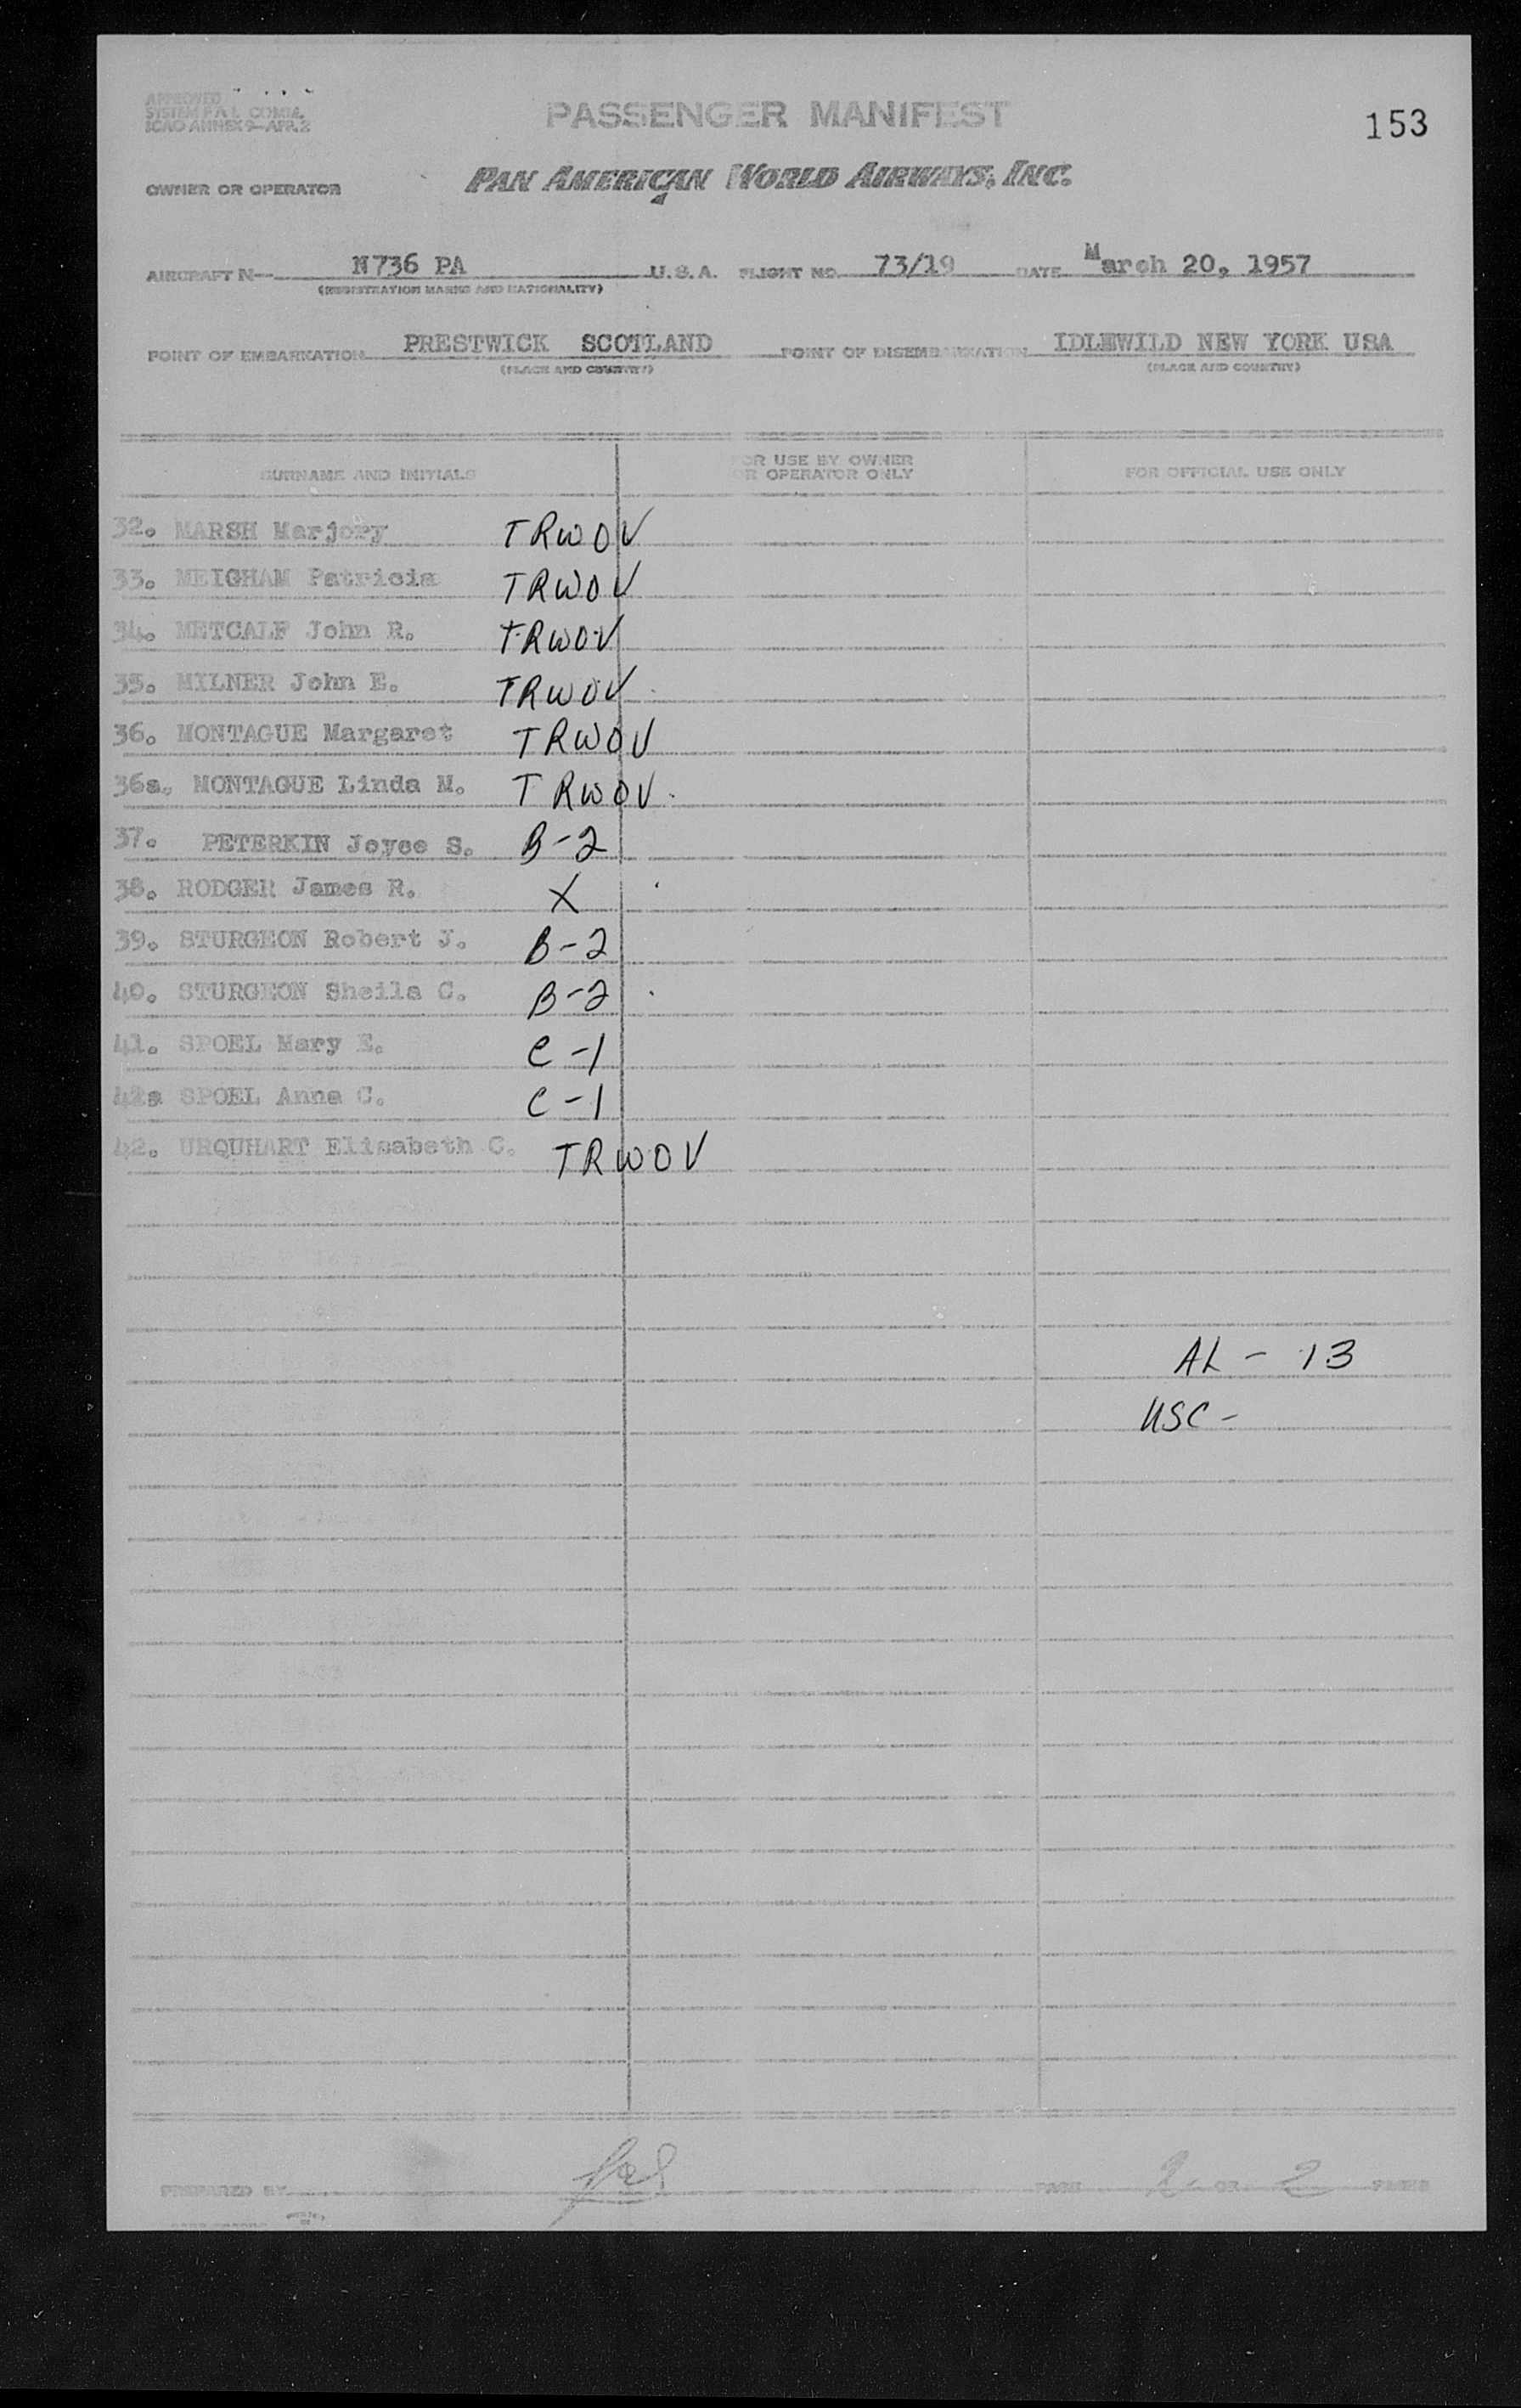 APPROVED
SYSTEM P.A.L. COMM.
ICAO ANNEX 9—APR. 2
PASSENGER MANIFEST
153
OWNER OR OPERATOR PAN AMERICAN WORLD AIRWAYS, INC.
AIRCRAFT N— N736 PA U.S.A. FLIGHT NO. 73/19 DATE March 20, 1957
(REGISTRATION MARKS AND NATIONALITY)
POINT OF EMBARKATION PRESTWICK SCOTLAND POINT OF DISEMBARKATION IDLEWILD NEW YORK USA
(PLACE AND COUNTRY) (PLACE AND COUNTRY)
SURNAME AND INITIALS FOR USE BY OWNER OR OPERATOR ONLY FOR OFFICIAL USE ONLY
32. MARSH Marjory TRWOV
33. MEIGHAM Patricia TRWOV
34. METCALF John R. TRWOV
35. MILNER John E. TRWOV
36. MONTAGUE Margaret TRWOV
36a. MONTAGUE Linda M. TRWOV
37. PETERKIN Joyce S. B-2
38. RODGER James R. X
39. STURGEON Robert J. B-2
40. STURGEON Sheila C. B-2
41. SPOEL Mary E. C-1
41a SPOEL Anna C. C-1
42. URQUHART Elisabeth C. TRWOV
AL - 13
USC -
PREPARED BY PAGE 2 OF 2 PAGES